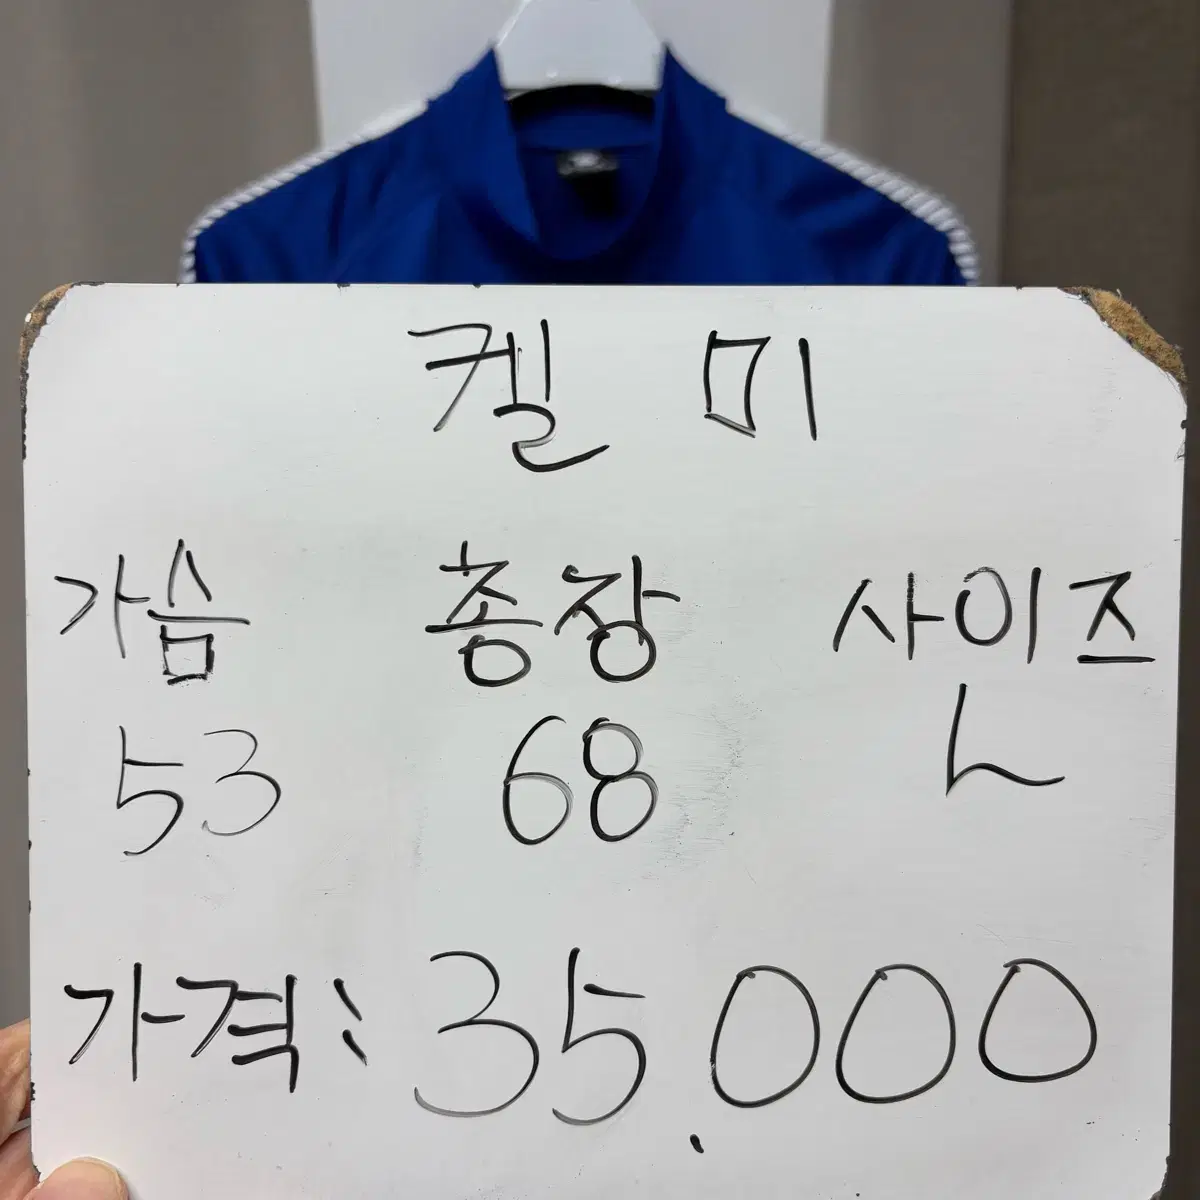 켈미
가슴 총장 사이즈
53 68 L
가격: 35,000